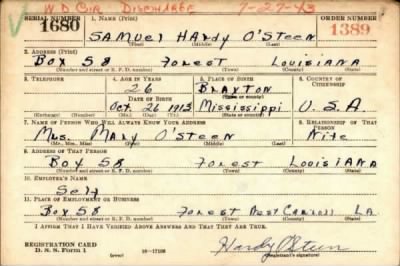 W D Cir Discharge 7-27-43
SERIAL NUMBER 1. NAME (Print) ORDER NUMBER
1680 SAMUEL HARDY O'STEEN 1389
(First) (Middle) (Last)
2. ADDRESS (Print)
Box 58 Forest LOUISIANA
(Number and street or R. F. D. number) (Town) (County) (State)
3. TELEPHONE 4. AGE IN YEARS 5. PLACE OF BIRTH 6. COUNTRY OF CITIZENSHIP
26 BRAXTON
DATE OF BIRTH (Town or county)
Oct 26 1913 Mississippi U.S.A.
(Exchange) (Number) (Mo.) (Day) (Yr.) (State or country)
7. NAME OF PERSON WHO WILL ALWAYS KNOW YOUR ADDRESS 8. RELATIONSHIP OF THAT PERSON
Mrs. Mary O'Steen Wife
(Mr., Mrs., Miss) (First) (Middle) (Last)
9. ADDRESS OF THAT PERSON
Box 58 Forest LOUISIANA
(Number and street or R. F. D. number) (Town) (County) (State)
10. EMPLOYER'S NAME
Self
11. PLACE OF EMPLOYMENT OR BUSINESS
Box 58 Forest West Carroll LA.
(Number and street or R. F. D. number) (Town) (County) (State)
I AFFIRM THAT I HAVE VERIFIED ABOVE ANSWERS AND THAT THEY ARE TRUE.
REGISTRATION CARD
D. S. S. Form 1 (over) Hardy O'Steen
(Registrant's signature)